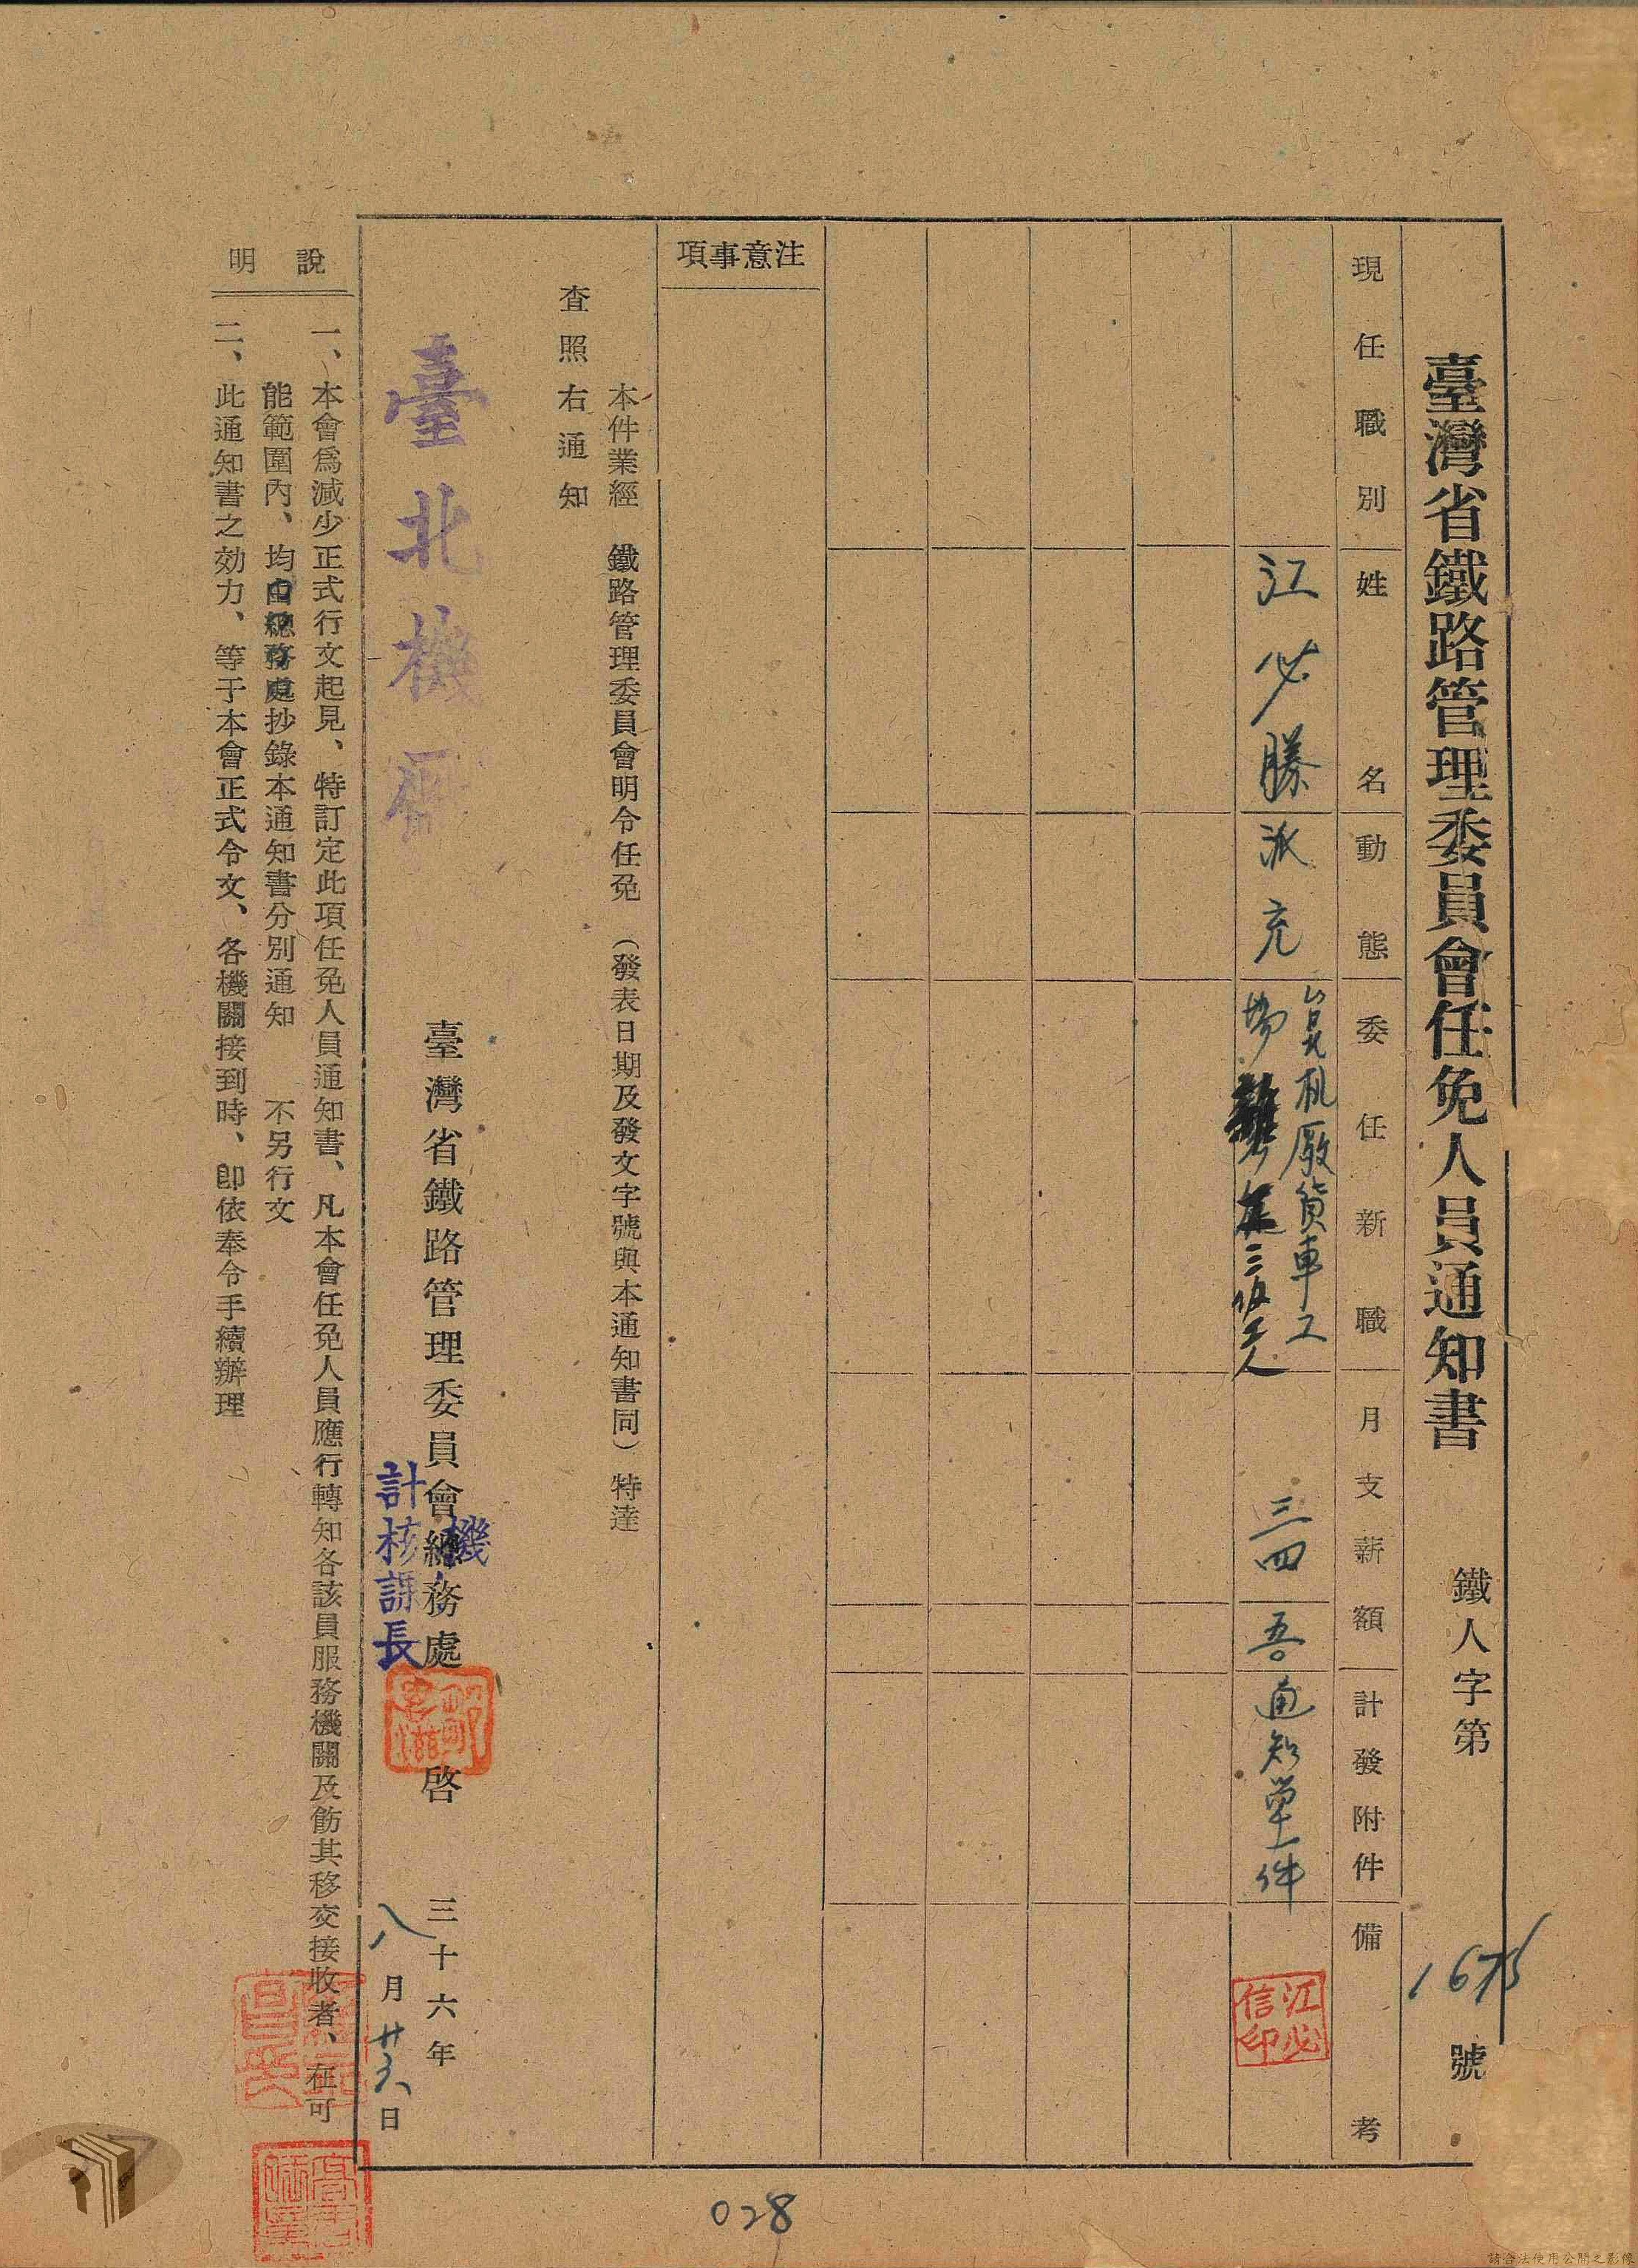 臺灣省鐵路管理委員會任免人員通知書　鐵人字第1675號
現任職別　姓名　動態　委任新職　月支薪額　計發附件　備考
江必勝　派充　台北机廠貨車工
場　三級工人　三四　吾　通知單一件
江必
信印
注意事項
本件業經　鐵路管理委員會明令任免　（發表日期及發文字號與本通知書同）特達
查照右通知
臺北機廠
臺灣省鐵路管理委員會總務處　啓　三十六年
機
計核課長
八月廿六日
說明
一、本會爲減少正式行文起見、特訂定此項任免人員通知書、凡本會任免人員應行轉知各該員服務機關及飭其移交接收者、在可
能範圍內、均由總務處抄錄本通知書分別通知　不另行文
二、此通知書之効力、等于本會正式令文、各機關接到時、卽依奉令手續辦理
028
請合法使用公開之影像